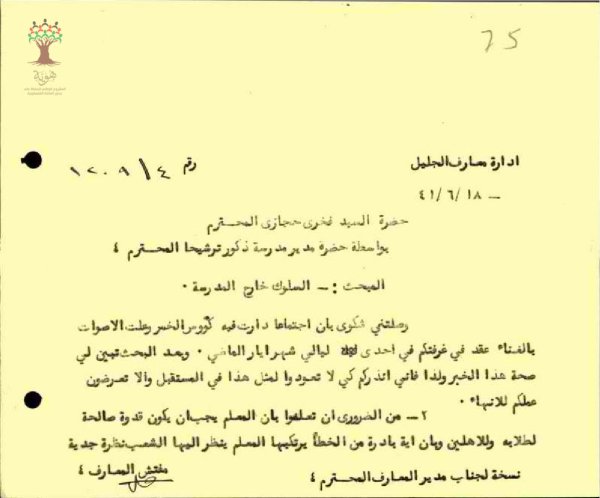 75
هوية
ادارة معارف الجليل
رقم ١٢٠٩/٤
٤١/٦/١٨ –
حضرة السيد فخرى حجازى المحترم
بواسطة حضرة مدير مدرسة ذكور ترشيحا المحترم ؛
المبحث : – السلوك خارج المدرسة ٠
وصلتني شكوى بان اجتماعا دارت فيه كؤوس الخمر وعلت الاصوات
بالغناء عقد في غرفتكم في احدى ليالي شهر ايار الماضي ٠ وبعد البحث تبين لي
صحة هذا الخبر ولذا فاني انذركم كي لا تعودوا لمثل هذا في المستقبل والا تعرضون
عملكم للانهاء ٠
٢– من الضرورى ان تعلموا بان المعلم يجب ان يكون قدوة صالحة
لطلابه وللاهلين وبان اية بادرة من الخطأ يرتكبها المعلم ينظر اليها الشعب نظرة جدية
نسخة لجناب مدير المعارف المحترم ؛
مفتش المعارف ؛